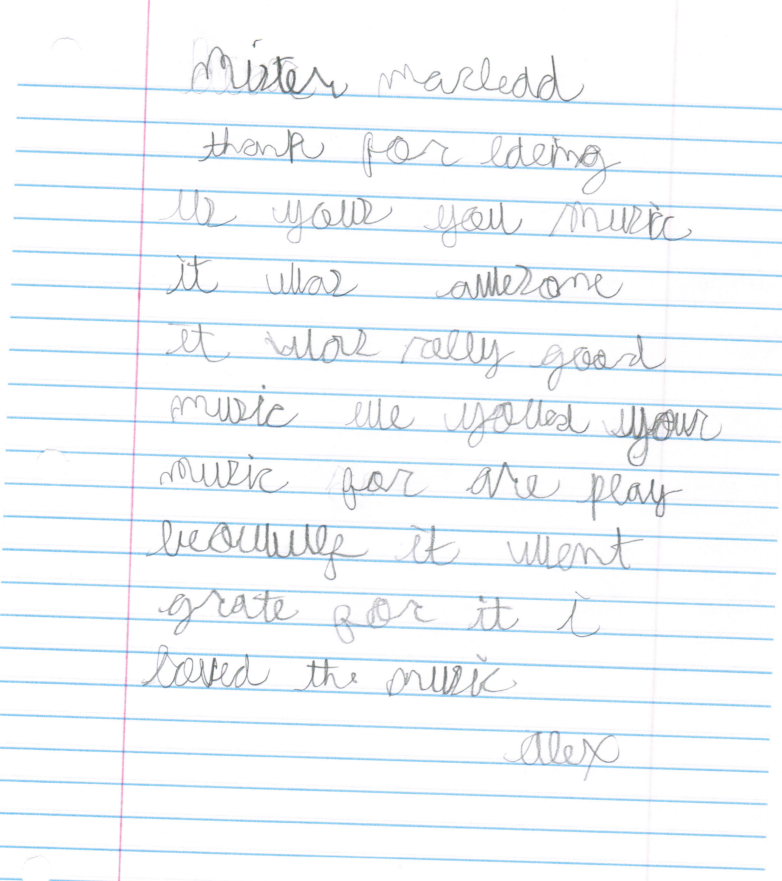 Mister macledd
thank for ldeing
us youse you music
it was awesome
it was rally good
music we yoused your
music for are play
becauuse it went
grate for it i
loved the music
alex